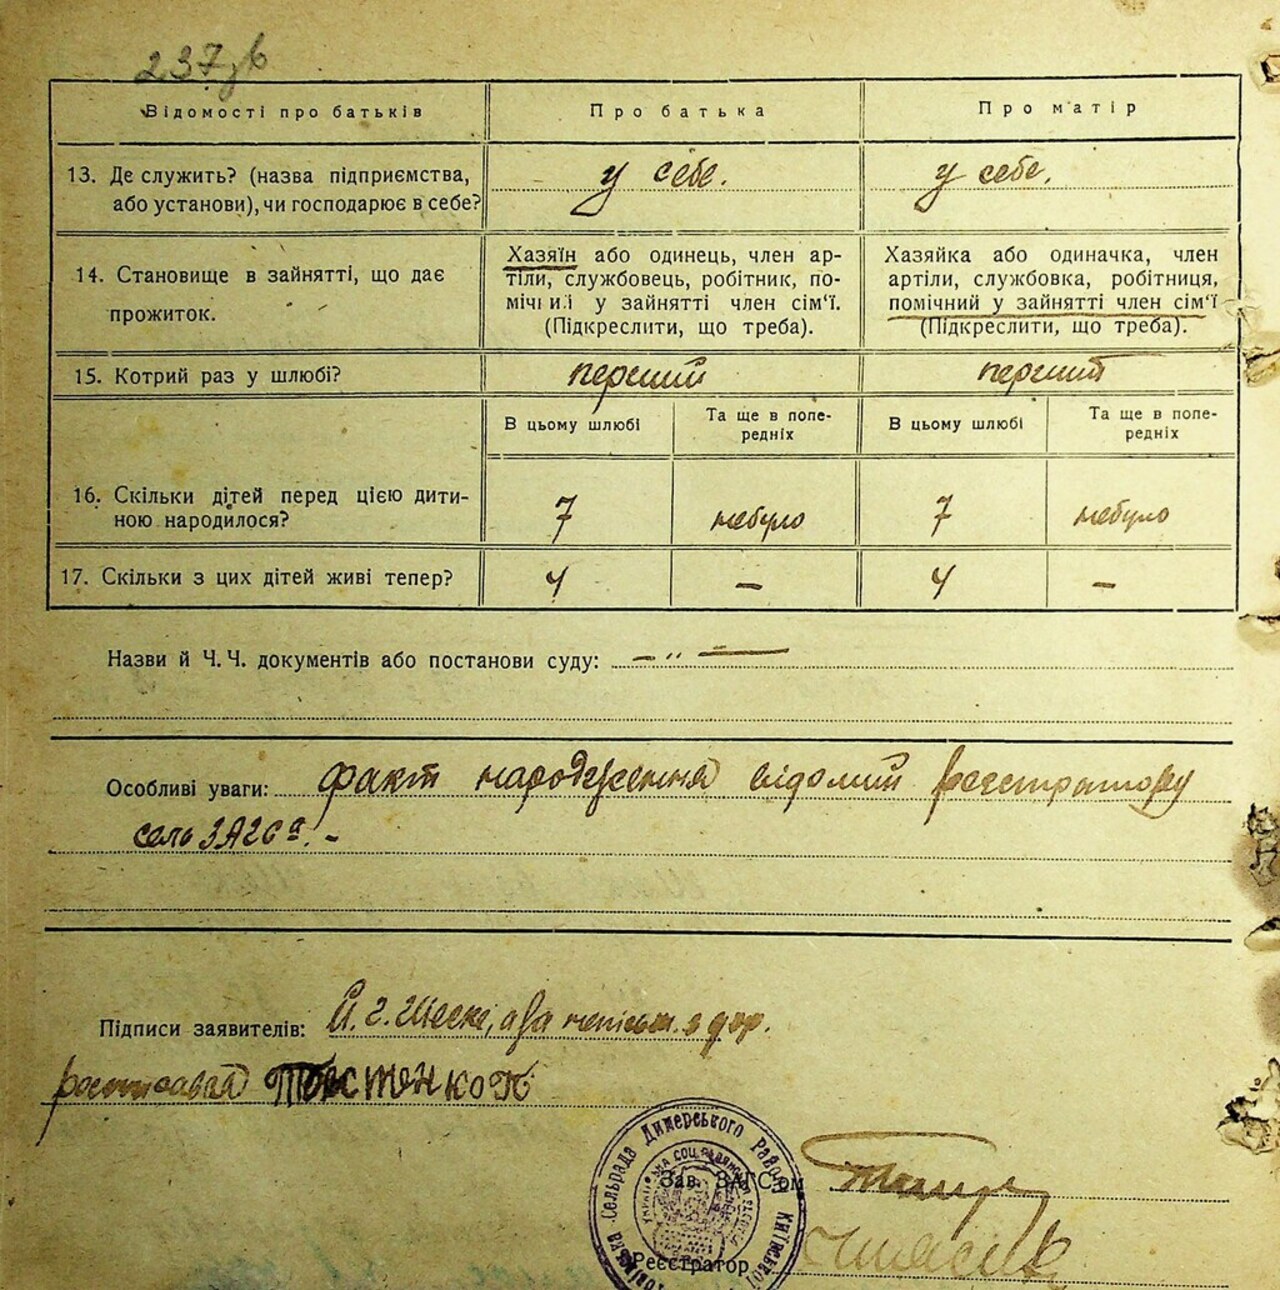 237зв
Відомості про батьків
Про батька
Про матір
13. Де служить? (назва підприємства,
або установи), чи господарює в себе?
у себе.
у себе.
14. Становище в зайнятті, що дає
прожиток.
Хазяїн або одинець, член ар-
тіли, службовець, робітник, по-
мічний у зайнятті член сім'ї.
(Підкреслити, що треба).
Хазяйка або одиначка, член
артіли, службовка, робітниця,
помічний у зайнятті член сім'ї
(Підкреслити, що треба).
15. Котрий раз у шлюбі?
перший
перший
В цьому шлюбі
Та ще в попе-
редніх
В цьому шлюбі
Та ще в попе-
редніх
16. Скільки дітей перед цією дити-
ною народилося?
7
небуло
7
небуло
17. Скільки з цих дітей живі тепер?
4
–
4
–
Назви й Ч. Ч. документів або постанови суду: — „ —
Особливі уваги: факт народження відомий регстратору
сель ЗАГСа! -
Підписи заявителів:
Сельрада Димерського Району Київської
Зав. ЗАГСом
Реєстратор